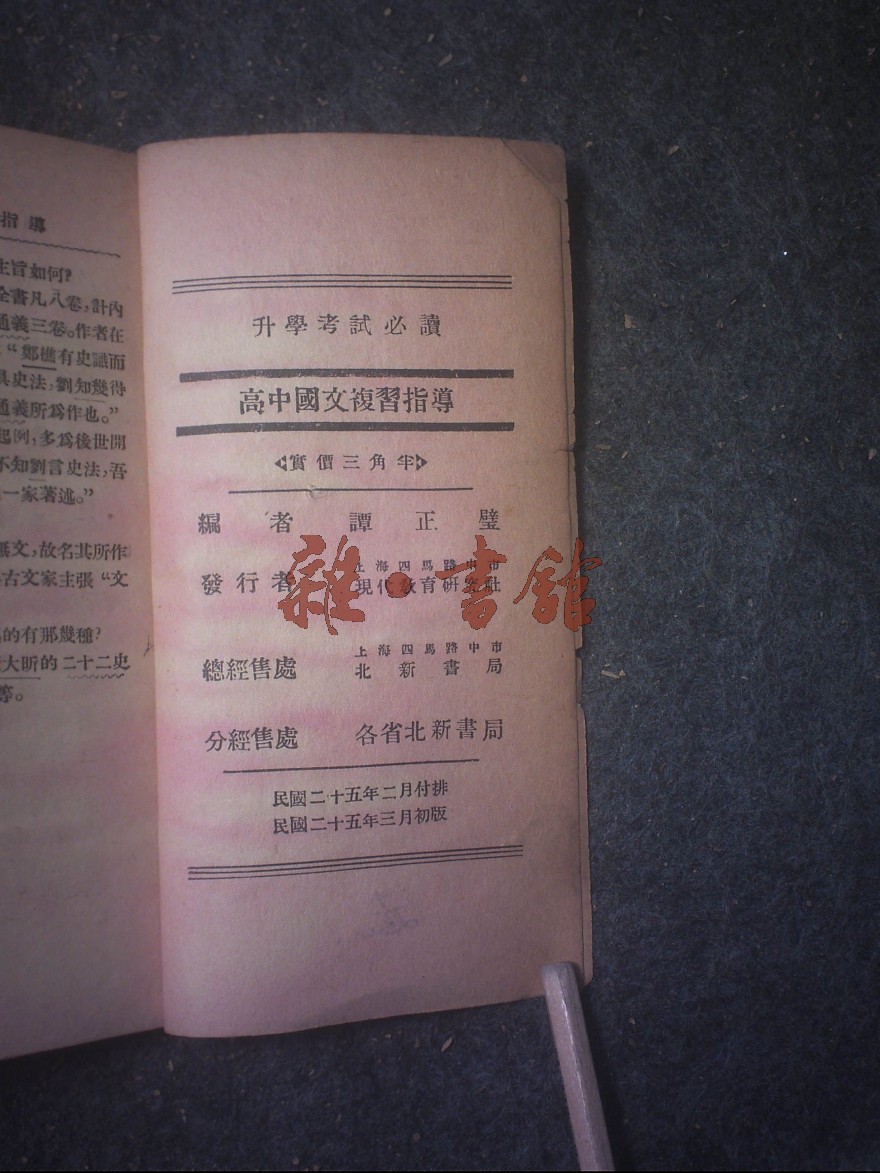 指導
主旨如何?
全書凡八卷，計內
通義三卷。作者在
“鄭樵有史識而
具史法，劉知幾得
通義所爲作也。”
起例，多爲後世開
不知劉言史法，吾
一家著述。”
無文，故名其所作
古文家主張“文
的有那幾種?
大昕的二十二史
等。
升學考試必讀
高中國文複習指導
實價三角半
編者 譚正璧
上海四馬路中市
發行者 現代教育研究社
上海四馬路中市
總經售處 北新書局
分經售處 各省北新書局
民國二十五年二月付排
民國二十五年三月初版
雜·書館